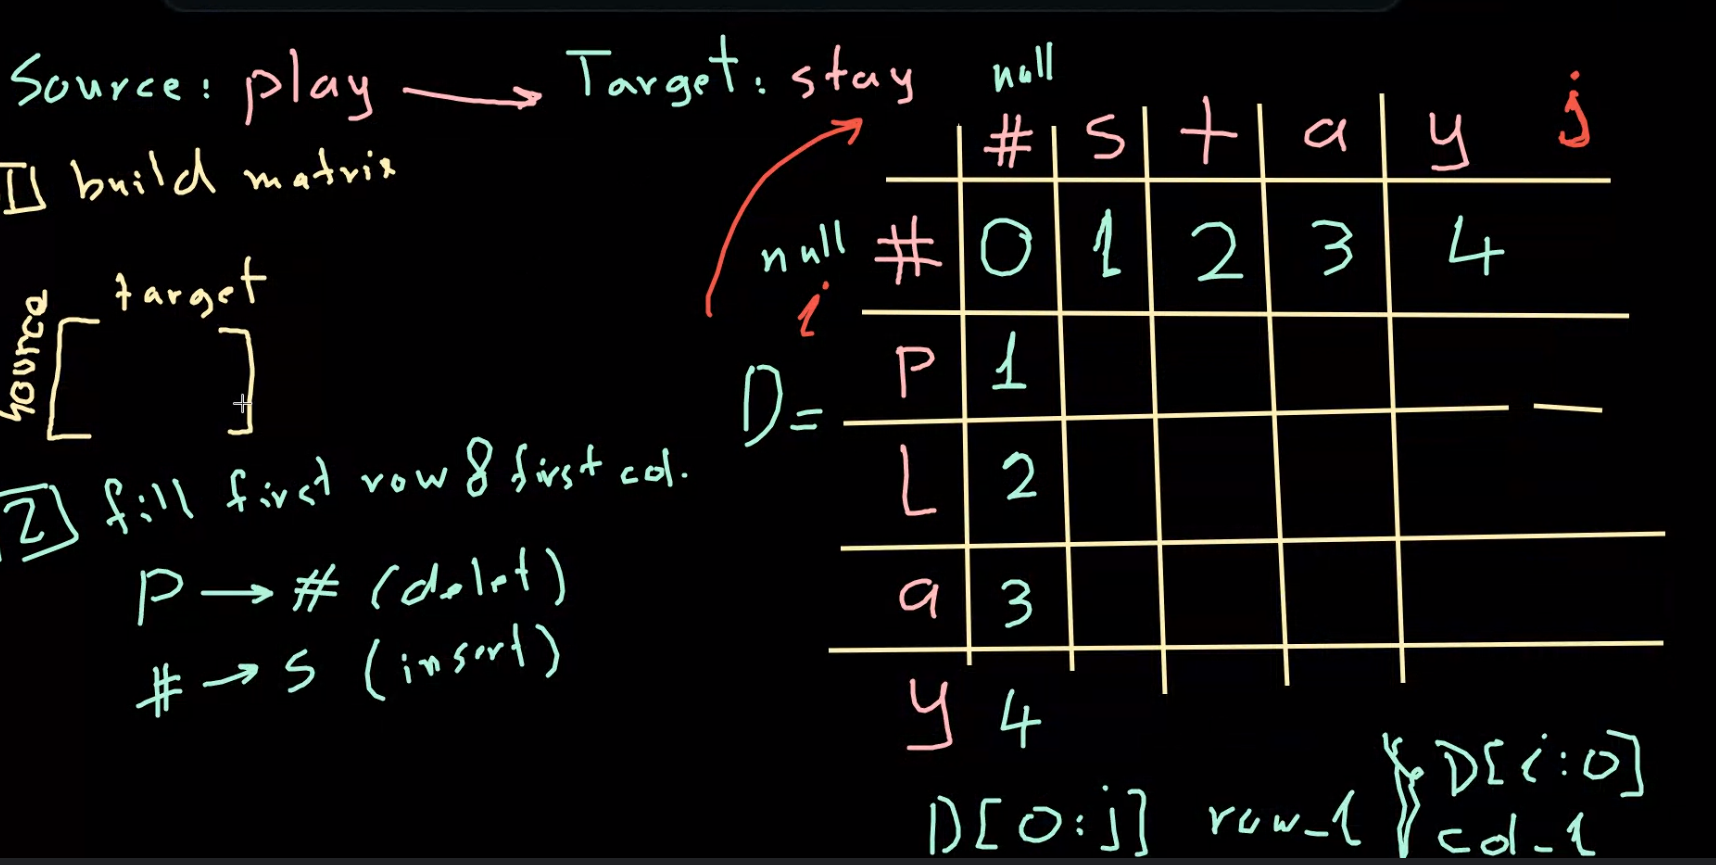 Source: play → Target: stay
1 build matrix
target
source
2 fill first row & first col.
P → # (delet)
# → S (insert)
null
# s t a y j
null # 0 1 2 3 4
i
D =
P 1
L 2
a 3
y 4
D[0:j] row_1 D[i:0]
col_1